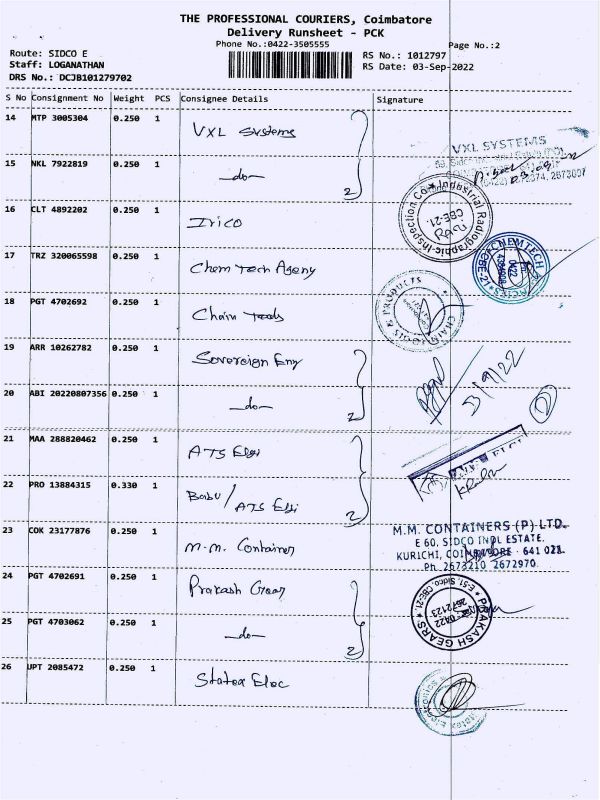 THE PROFESSIONAL COURIERS, Coimbatore
Delivery Runsheet - PCK
Phone No.:0422-3505555
Page No.:2
Route: SIDCO E
Staff: LOGANATHAN
DRS No.: DCJB101279702
RS No.: 1012797
RS Date: 03-Sep-2022
S No Consignment No Weight PCS Consignee Details Signature
14 MTP 3005304 0.250 1 VXL Systems
VXL SYSTEMS
15 NKL 7922819 0.250 1 —do— 2
16 CLT 4892202 0.250 1 Irico
Industrial Radiographic Inspection Co
CBE-21.
17 TRZ 320065598 0.250 1 Chem Tech Agency
CHEMTECH
0422
CBE-21
18 PGT 4702692 0.250 1 Chain Tools
& PRODUCTS
19 ARR 10262782 0.250 1 Sovereign Eng
3/9/22
20 ABI 20220807356 0.250 1 —do— 2
21 MAA 288820462 0.250 1 ATS Elgi
22 PRO 13884315 0.330 1 Babu / ATS Elgi 2
23 COK 23177876 0.250 1 M.M. Container
M.M. CONTAINERS (P) LTD.
E 60, SIDCO INDL ESTATE.
KURICHI, COIMBATORE - 641 021.
Ph. 2673210 2672970
24 PGT 4702691 0.250 1 Prakash Gear
PRAKASH GEARS
E-51, Sidco, CBE-21.
0422
2672123
25 PGT 4703062 0.250 1 —do— 2
26 UPT 2085472 0.250 1 Statex Elec